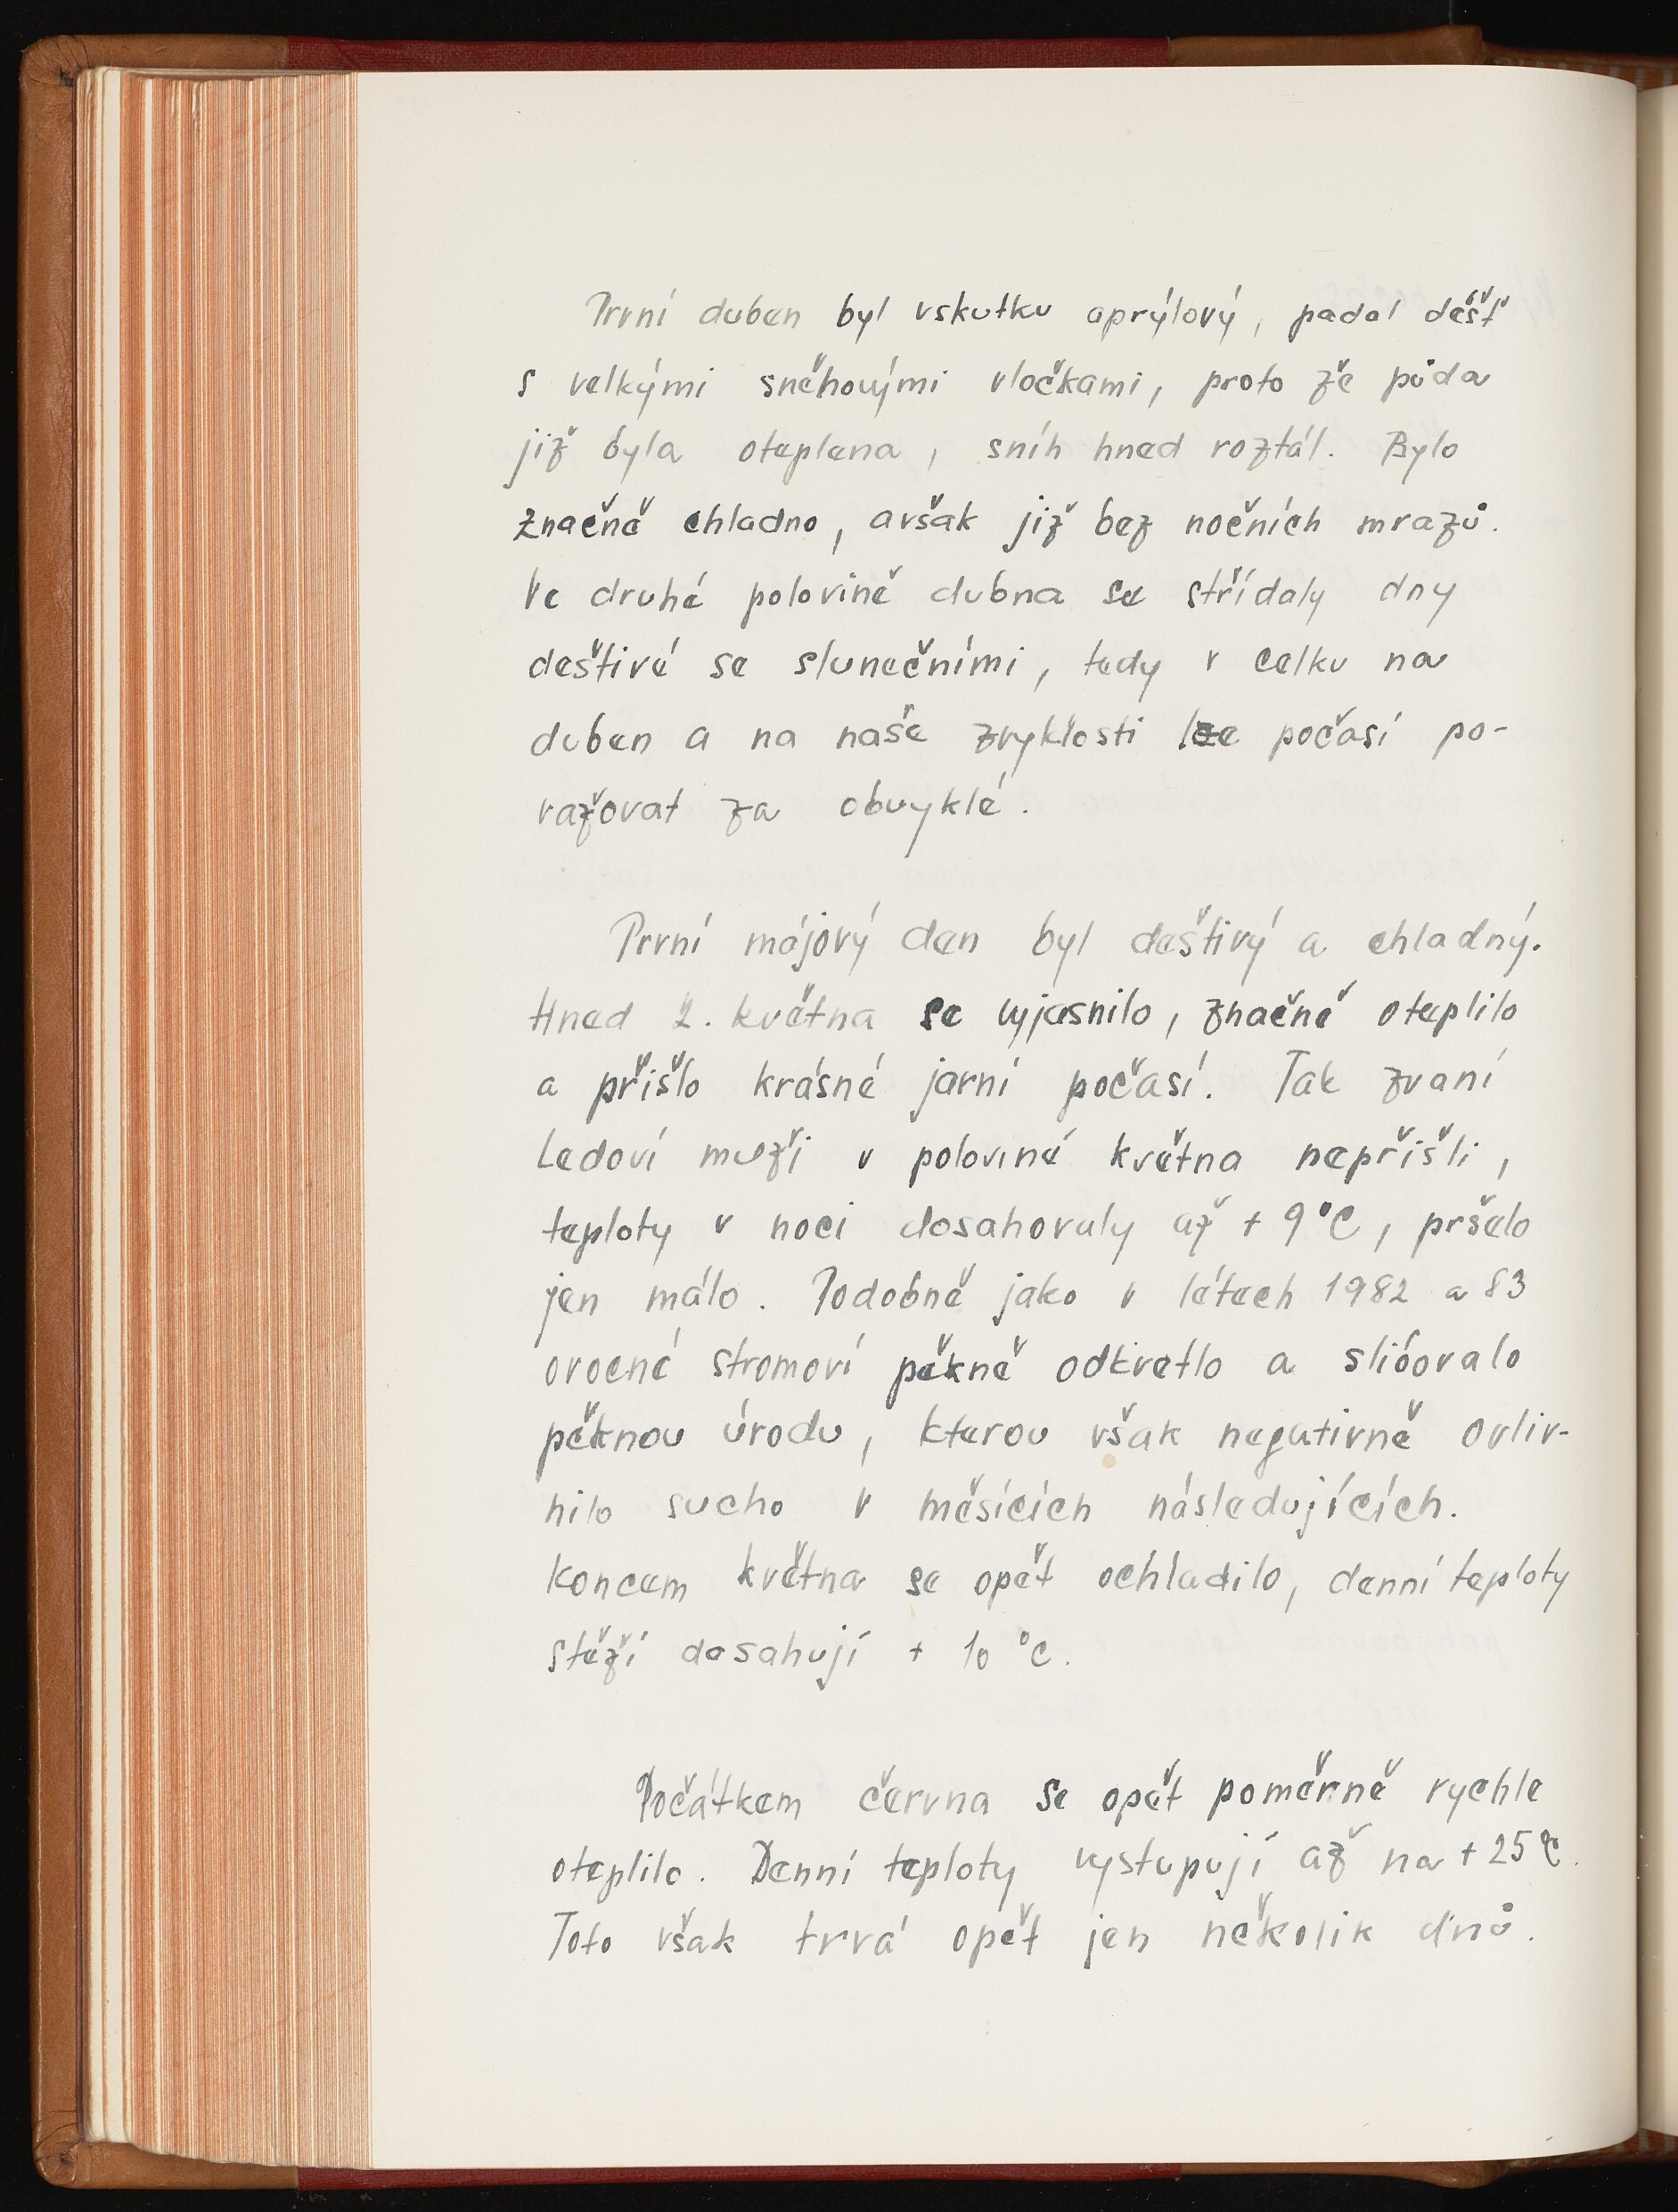 První duben byl vskutku aprýlový, padal déšť
s velkými sněhovými vločkami, proto že půda
již byla oteplena, sníh hned roztál. Bylo
značně chladno, avšak již bez nočních mrazů.
Ve druhé polovině dubna se střídaly dny
deštivé se slunečními, tedy v celku na
duben a na naše zvyklosti lze počasí po-
važovat za obvyklé.
První májový den byl deštivý a chladný.
Hned 2. května se vyjasnilo, značně oteplilo
a přišlo krásné jarní počasí. Tak zvaní
Ledoví muži v polovině května nepřišli,
teploty v noci dosahovaly až + 9°C, pršelo
jen málo. Podobně jako v létech 1982 a 83
ovocné stromoví pěkně odkvetlo a slibovalo
pěknou úrodu, kterou však negativně ovliv-
nilo sucho v měsících následujících.
Koncem května se opět ochladilo, denní teploty
stěží dosahují + 10 °C.
Počátkem června se opět poměrně rychle
oteplilo. Denní teploty vystupují až na + 25 °C.
Toto však trvá opět jen několik dnů.